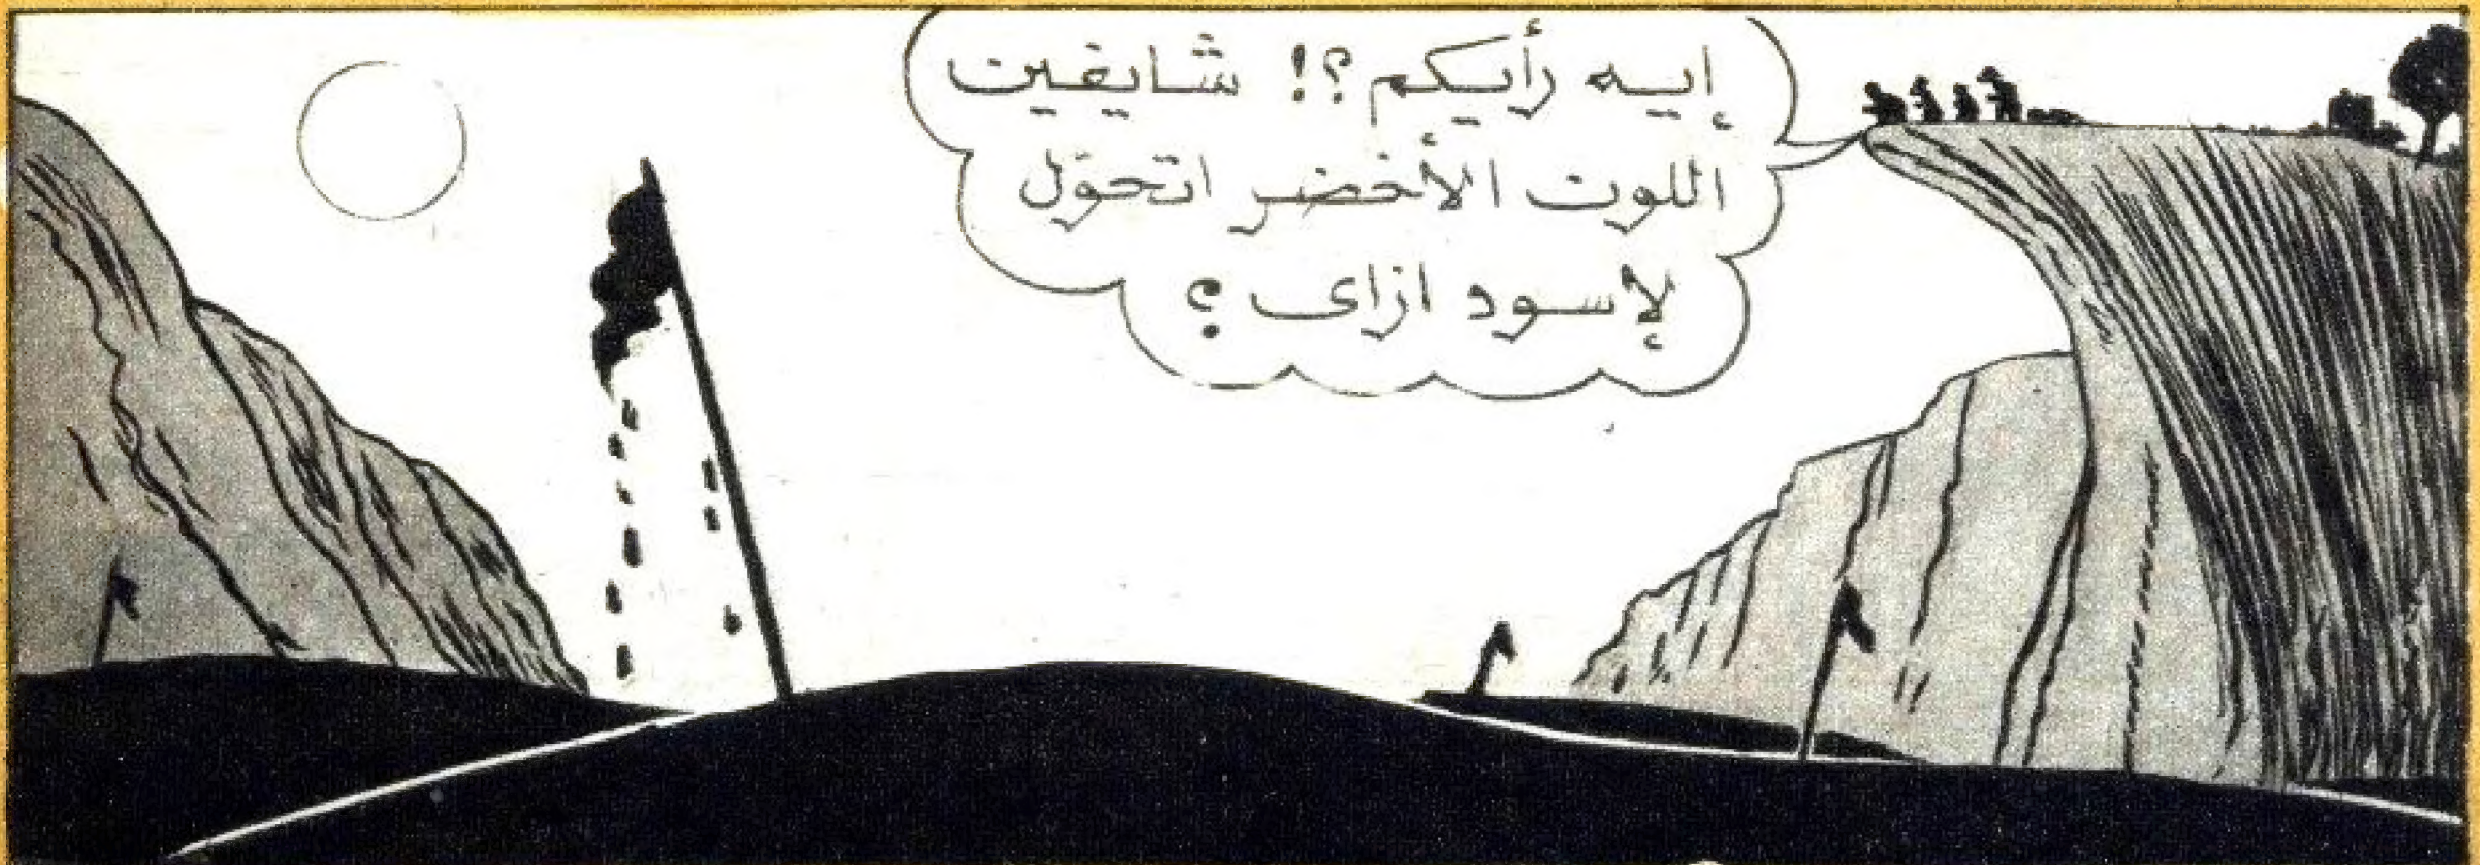 إيه رأيكم ؟! شايفين
اللون الأخضر اتحول
لإسود ازاى ؟